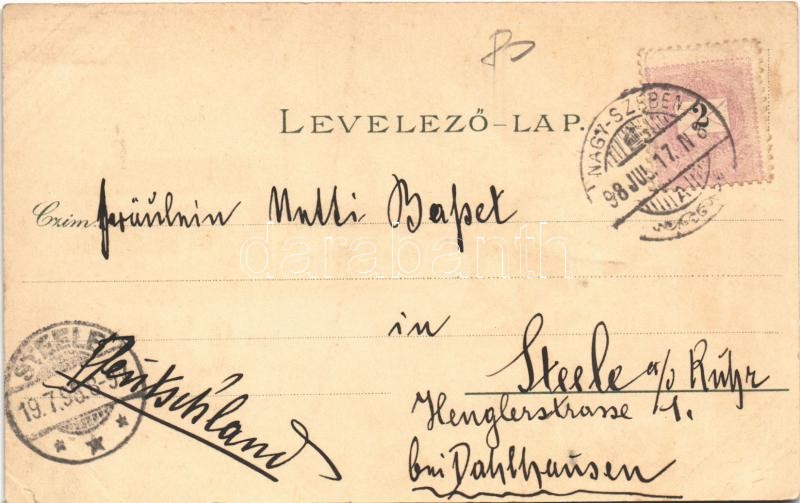 LEVELEZŐ-LAP.
2
NAGY-SZEBEN
98 JUL. 17. N 8
A
Czim: Fräulein Netti Baßet
darabanth
in
Steele a/d Ruhr
Henglerstrasse 1.
bei Dahlhausen
Deutschland
STEELE
19.7.98.